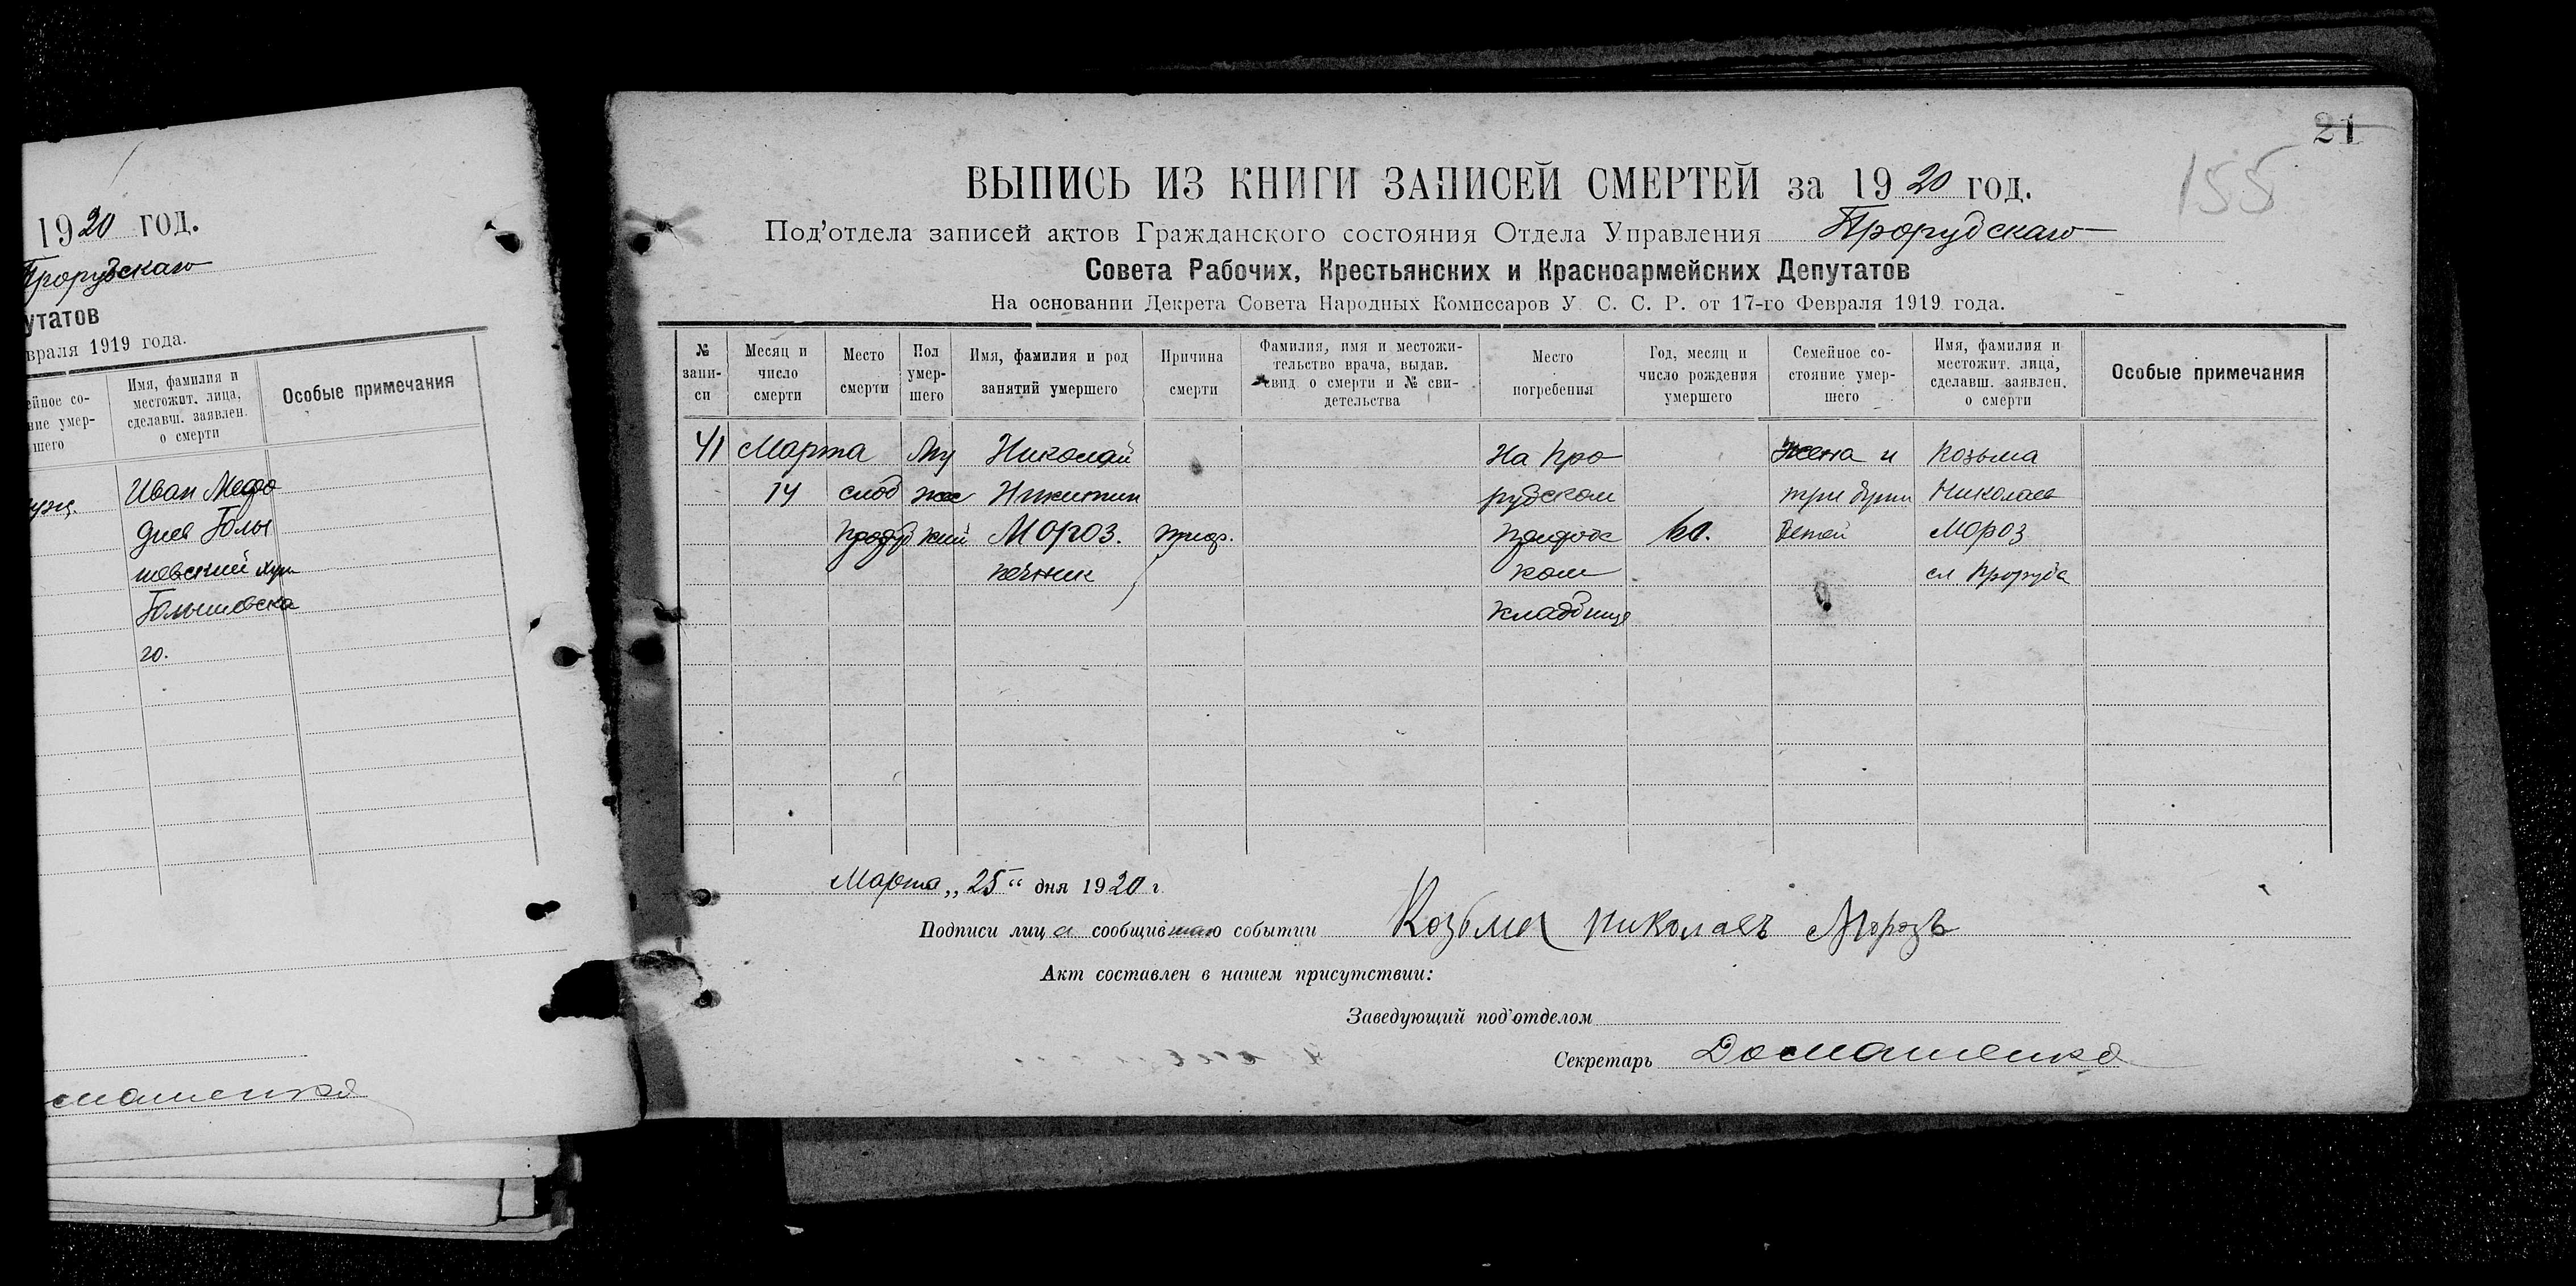 1920 год.
Прорубскаго
утатов
враля 1919 года.
ейное со-
ние умер-
шего
Имя, фамилия и
местожит. лица,
сделавш. заявлен.
о смерти
Особые примечания
Иван Мефо
диев Голы
шевский
Голышевска
го.
21
155
ВЫПИСЬ ИЗ КНИГИ ЗАПИСЕЙ СМЕРТЕЙ за 1920 год.
Под'отдела записей актов Гражданского состояния Отдела Управления Прорубскаго
Совета Рабочих, Крестьянских и Красноармейских Депутатов
На основании Декрета Совета Народных Комиссаров У. С. С. Р. от 17-го Февраля 1919 года.
№
запи-
си
Месяц и
число
смерти
Место
смерти
Пол
умер-
шего
Имя, фамилия и род
занятий умершего
Причина
смерти
Фамилия, имя и местожи-
тельство врача, выдав.
свид. о смерти и № сви-
детельства
Место
погребения
Год, месяц и
число рождения
умершего
Семейное со-
стояние умер-
шего
Имя, фамилия и
местожит. лица,
сделавш. заявлен.
о смерти
Особые примечания
41
Марта
14
слоб
Му
жс
кий
Николай
Никитин
Мороз.
печник
На Про
рубском
приходс
ком
кладбище
60.
Жена и
три
детей
Козьма
Николаев
Мороз
сл Проруба
Марта „25“ дня 1920 г
Подписи лица сообщившаго событии Козьма Николаевъ Морозъ
Акт составлен в нашем присутствии:
Заведующий под'отделом
Секретарь Домашенко